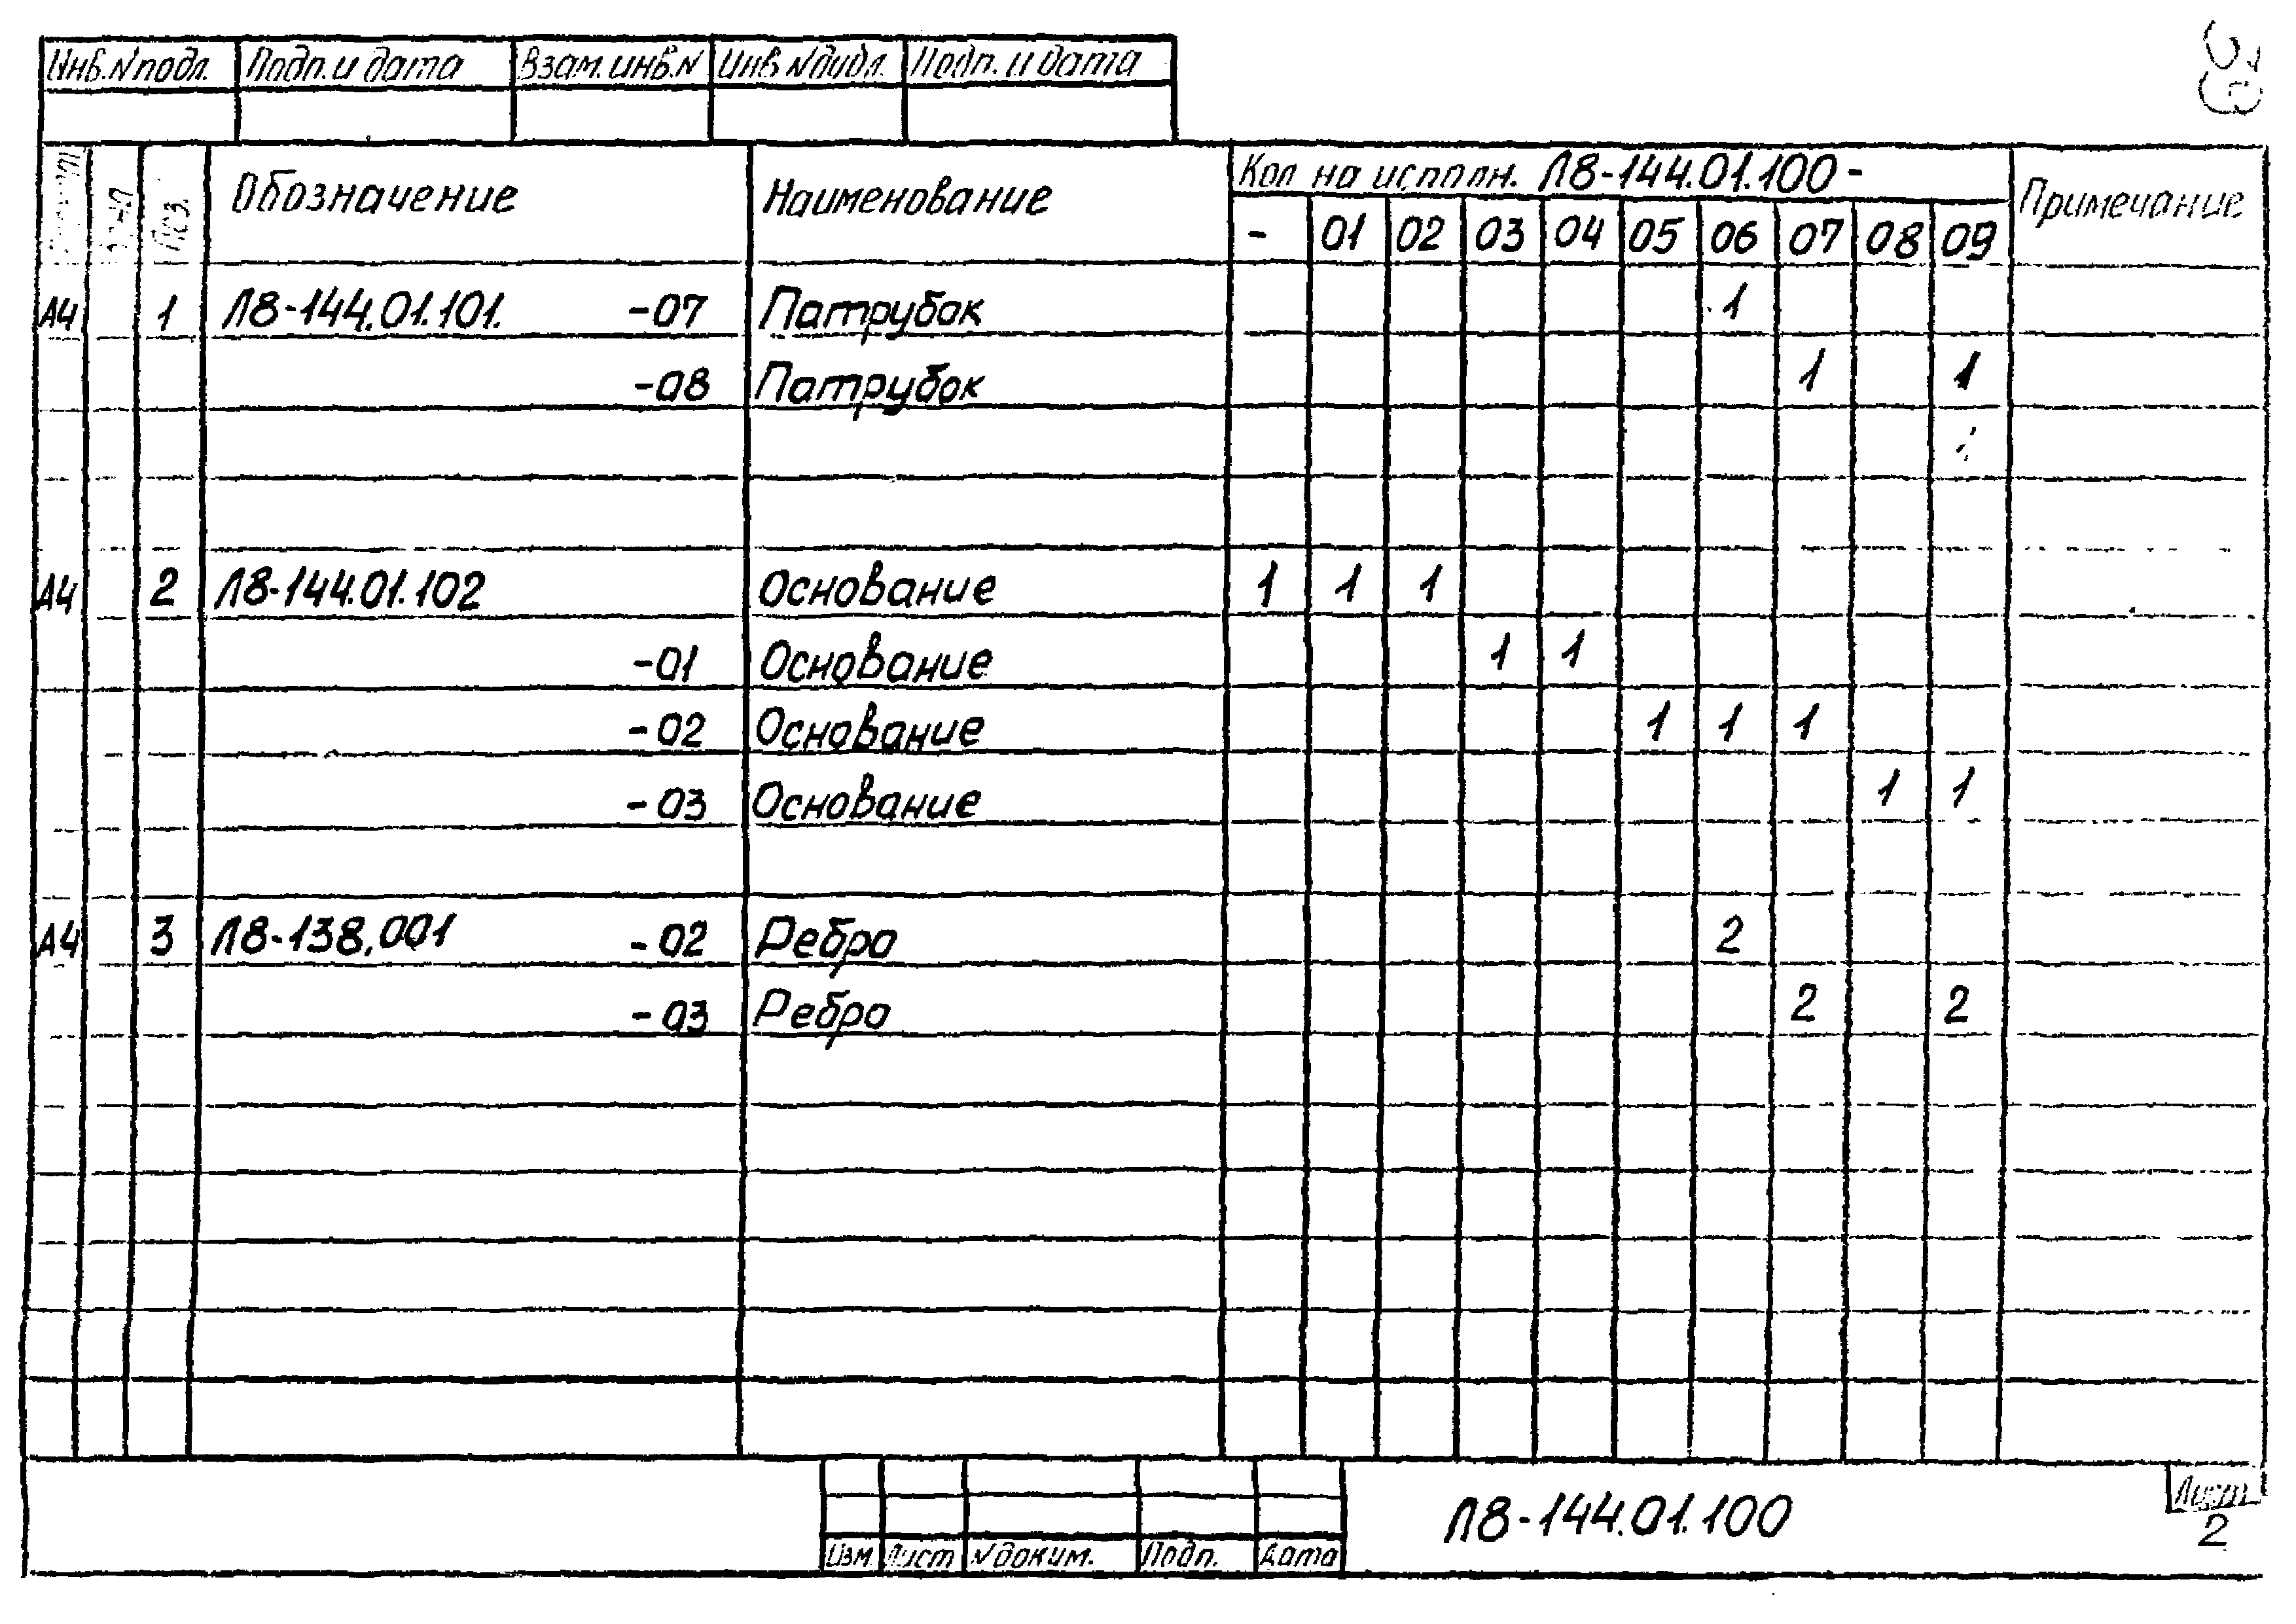 Инв.№подл. Подп.и дата Взам.инв.№ Инв.№дубл. Подп.и дата
Поз. Обозначение Наименование Кол на исполн. Л8-144.01.100- Примечание
- 01 02 03 04 05 06 07 08 09
А4 1 Л8-144.01.101. -07 Патрубок 1
-08 Патрубок 1 1
А4 2 Л8-144.01.102 Основание 1 1 1
-01 Основание 1 1
-02 Основание 1 1 1
-03 Основание 1 1
А4 3 Л8-138.001 -02 Ребро 2
-03 Ребро 2 2
Изм Лист №докум. Подп. Дата
Л8-144.01.100
Лист
2